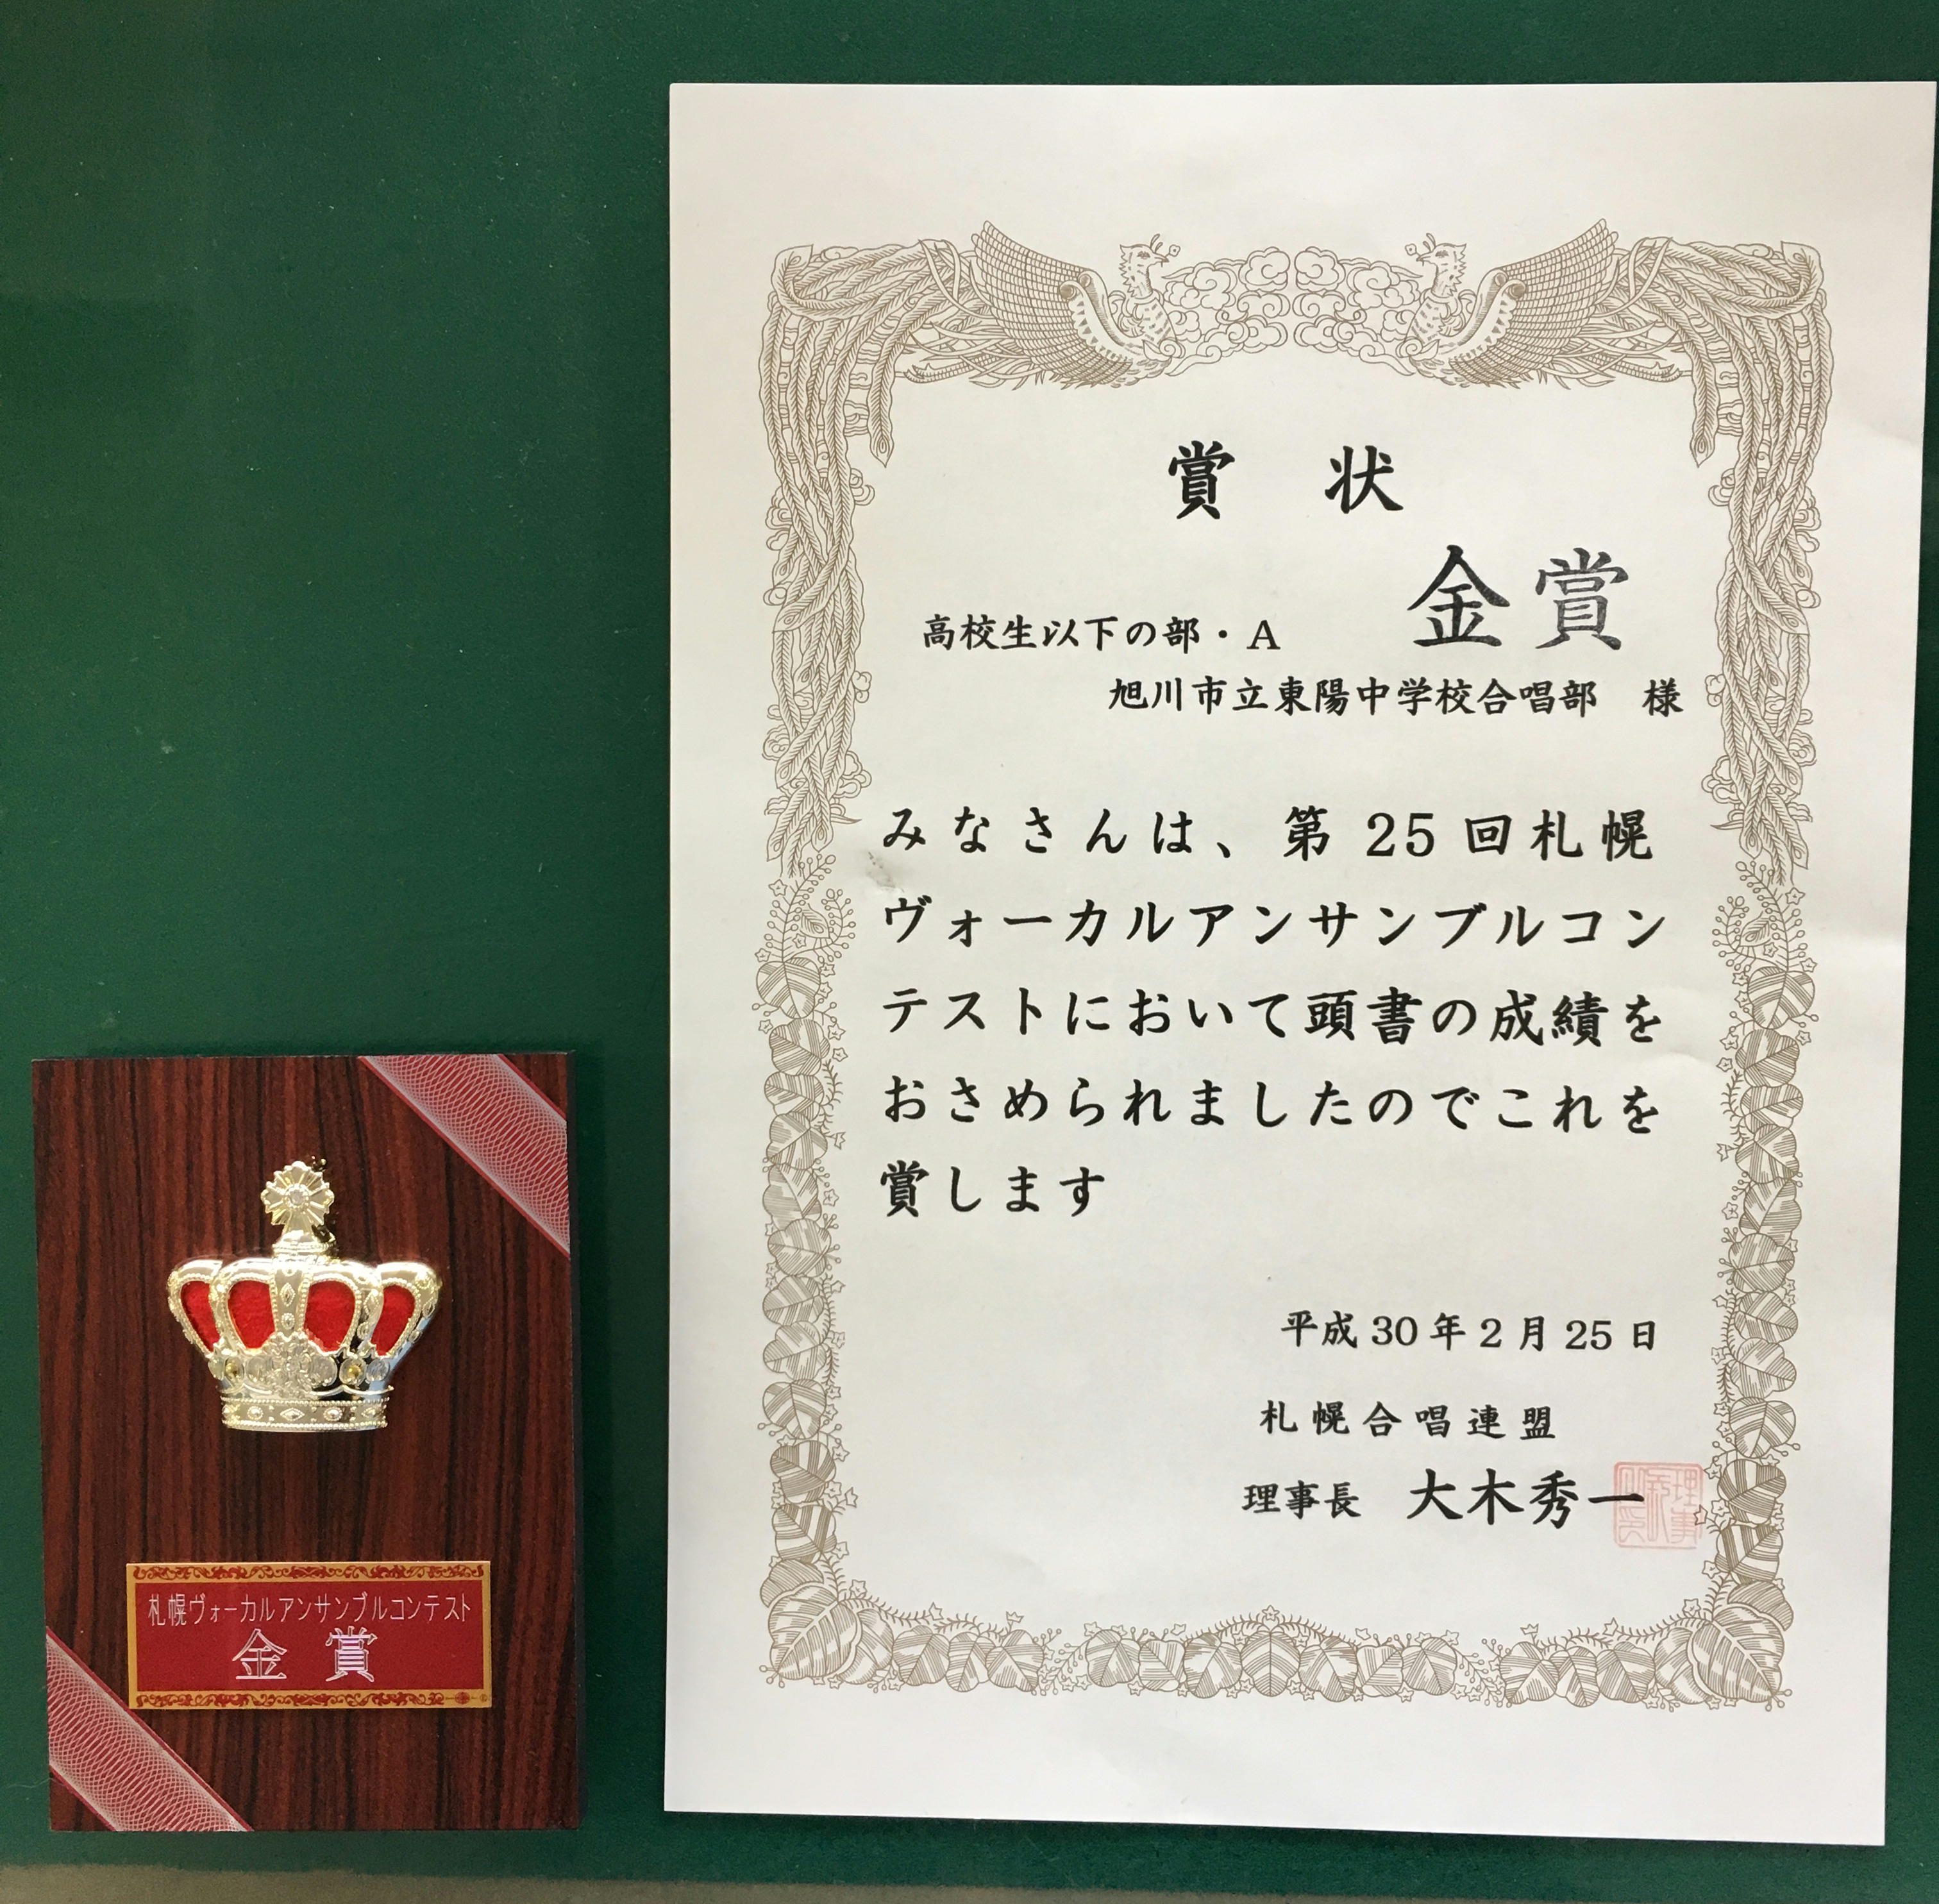 賞状
金賞
高校生以下の部・A
旭川市立東陽中学校合唱部 様
みなさんは、第25回札幌
ヴォーカルアンサンブルコン
テストにおいて頭書の成績を
おさめられましたのでこれを
賞します
平成30年2月25日
札幌合唱連盟
理事長 大木秀一
札幌ヴォーカルアンサンブルコンテスト
金賞